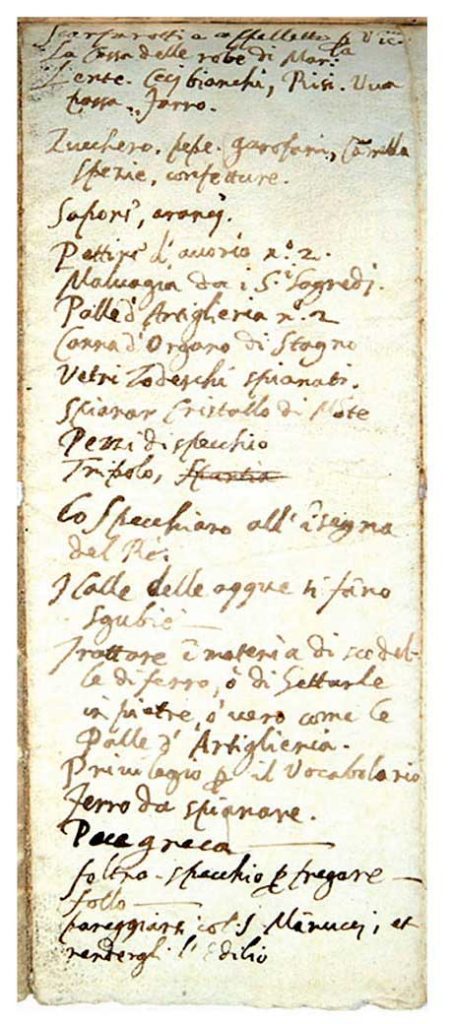 Scarfarotti e cappelletto p Vic.
La Cassa delle robe di Mar.la
Lente. Ceci bianchi, Risi. Uua
passa, Farro.
Zucchero. pepe. garofani, Cannella
spezie, confetture.
Saponi, aranci.
Pettini d'auorio n.o 2.
Maluagia da i S.i Sagredi.
Palle d'Artiglieria n.o 2
Canna d'Organo di Stagno
Vetri Todeschi spianati.
Spianar Cristallo di Mõte
Pezzi di specchio
Tripolo,
Lo Specchiaro all'ĩsegna
del Rè.
J Calle delle aqque si fãno
Sgubie —
Trattare ĩ materia di scodel-
le di ferro, ò di gettarle
in pietre, ò uero come le
Palle d'Artiglieria.
Priuilegio p il Vocabolario
Ferro da spianare.
Pece greca —
feltro. specchio p fregare —
follo —
pareggiarsi col S. Mãnucci, et
rendergli l'Edilio